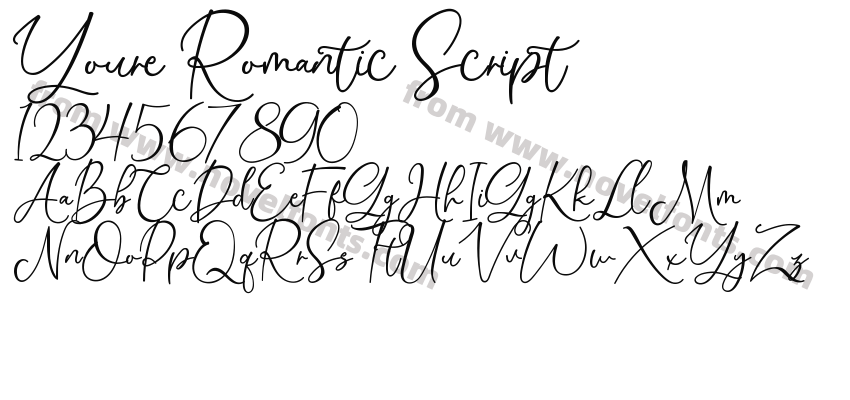 Youre Romantic Script
1234567890
AaBbCcDdEeFfGgHhIiGgKkLlMm
NnOoPpQqRrSsTtUuVvWwXxYyZz
from www.novelfonts.com
from www.novelfonts.com